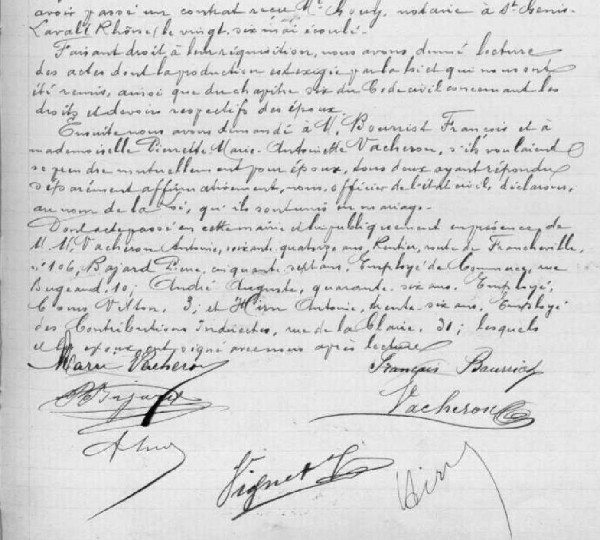 avoir passé un contrat reçu Me notaire à St Genis-
Laval (Rhône) le vingt six mai écoulé.
Faisant droit à leur réquisition, nous avons donné lecture
des actes dont la production est exigée par la loi et qui nous ont
été remis, ainsi que du chapitre six du Code civil concernant les
droits et devoirs respectifs des époux.
Ensuite nous avons demandé à M. Bourrist François et à
mademoiselle Pierrette Marie Antoinette Vacheron, s'ils voulaient
se prendre mutuellement pour époux, tous deux ayant répondu
séparément affirmativement, nous, officier de l'état civil, déclarons,
au nom de la Loi, qu'ils sont unis en mariage.
Dont acte passé en cette mairie et publiquement en présence de
M.M. Vacheron Antoine, soixante quatorze ans, Rentier, route de Francheville,
n° 106, Bajard Pierre, cinquante sept ans, Employé de Commerce, rue
Bugeaud, 10; André Auguste, quarante six ans, Employé,
Cours Vitton, 3; et Hirn Antoine, trente six ans, Employé
des Contributions Indirectes, rue de la Claire, 31; lesquels
et les époux ont signé avec nous après lecture
Marie Vacheron François
Bajard Vacheron
Vignet Hirn